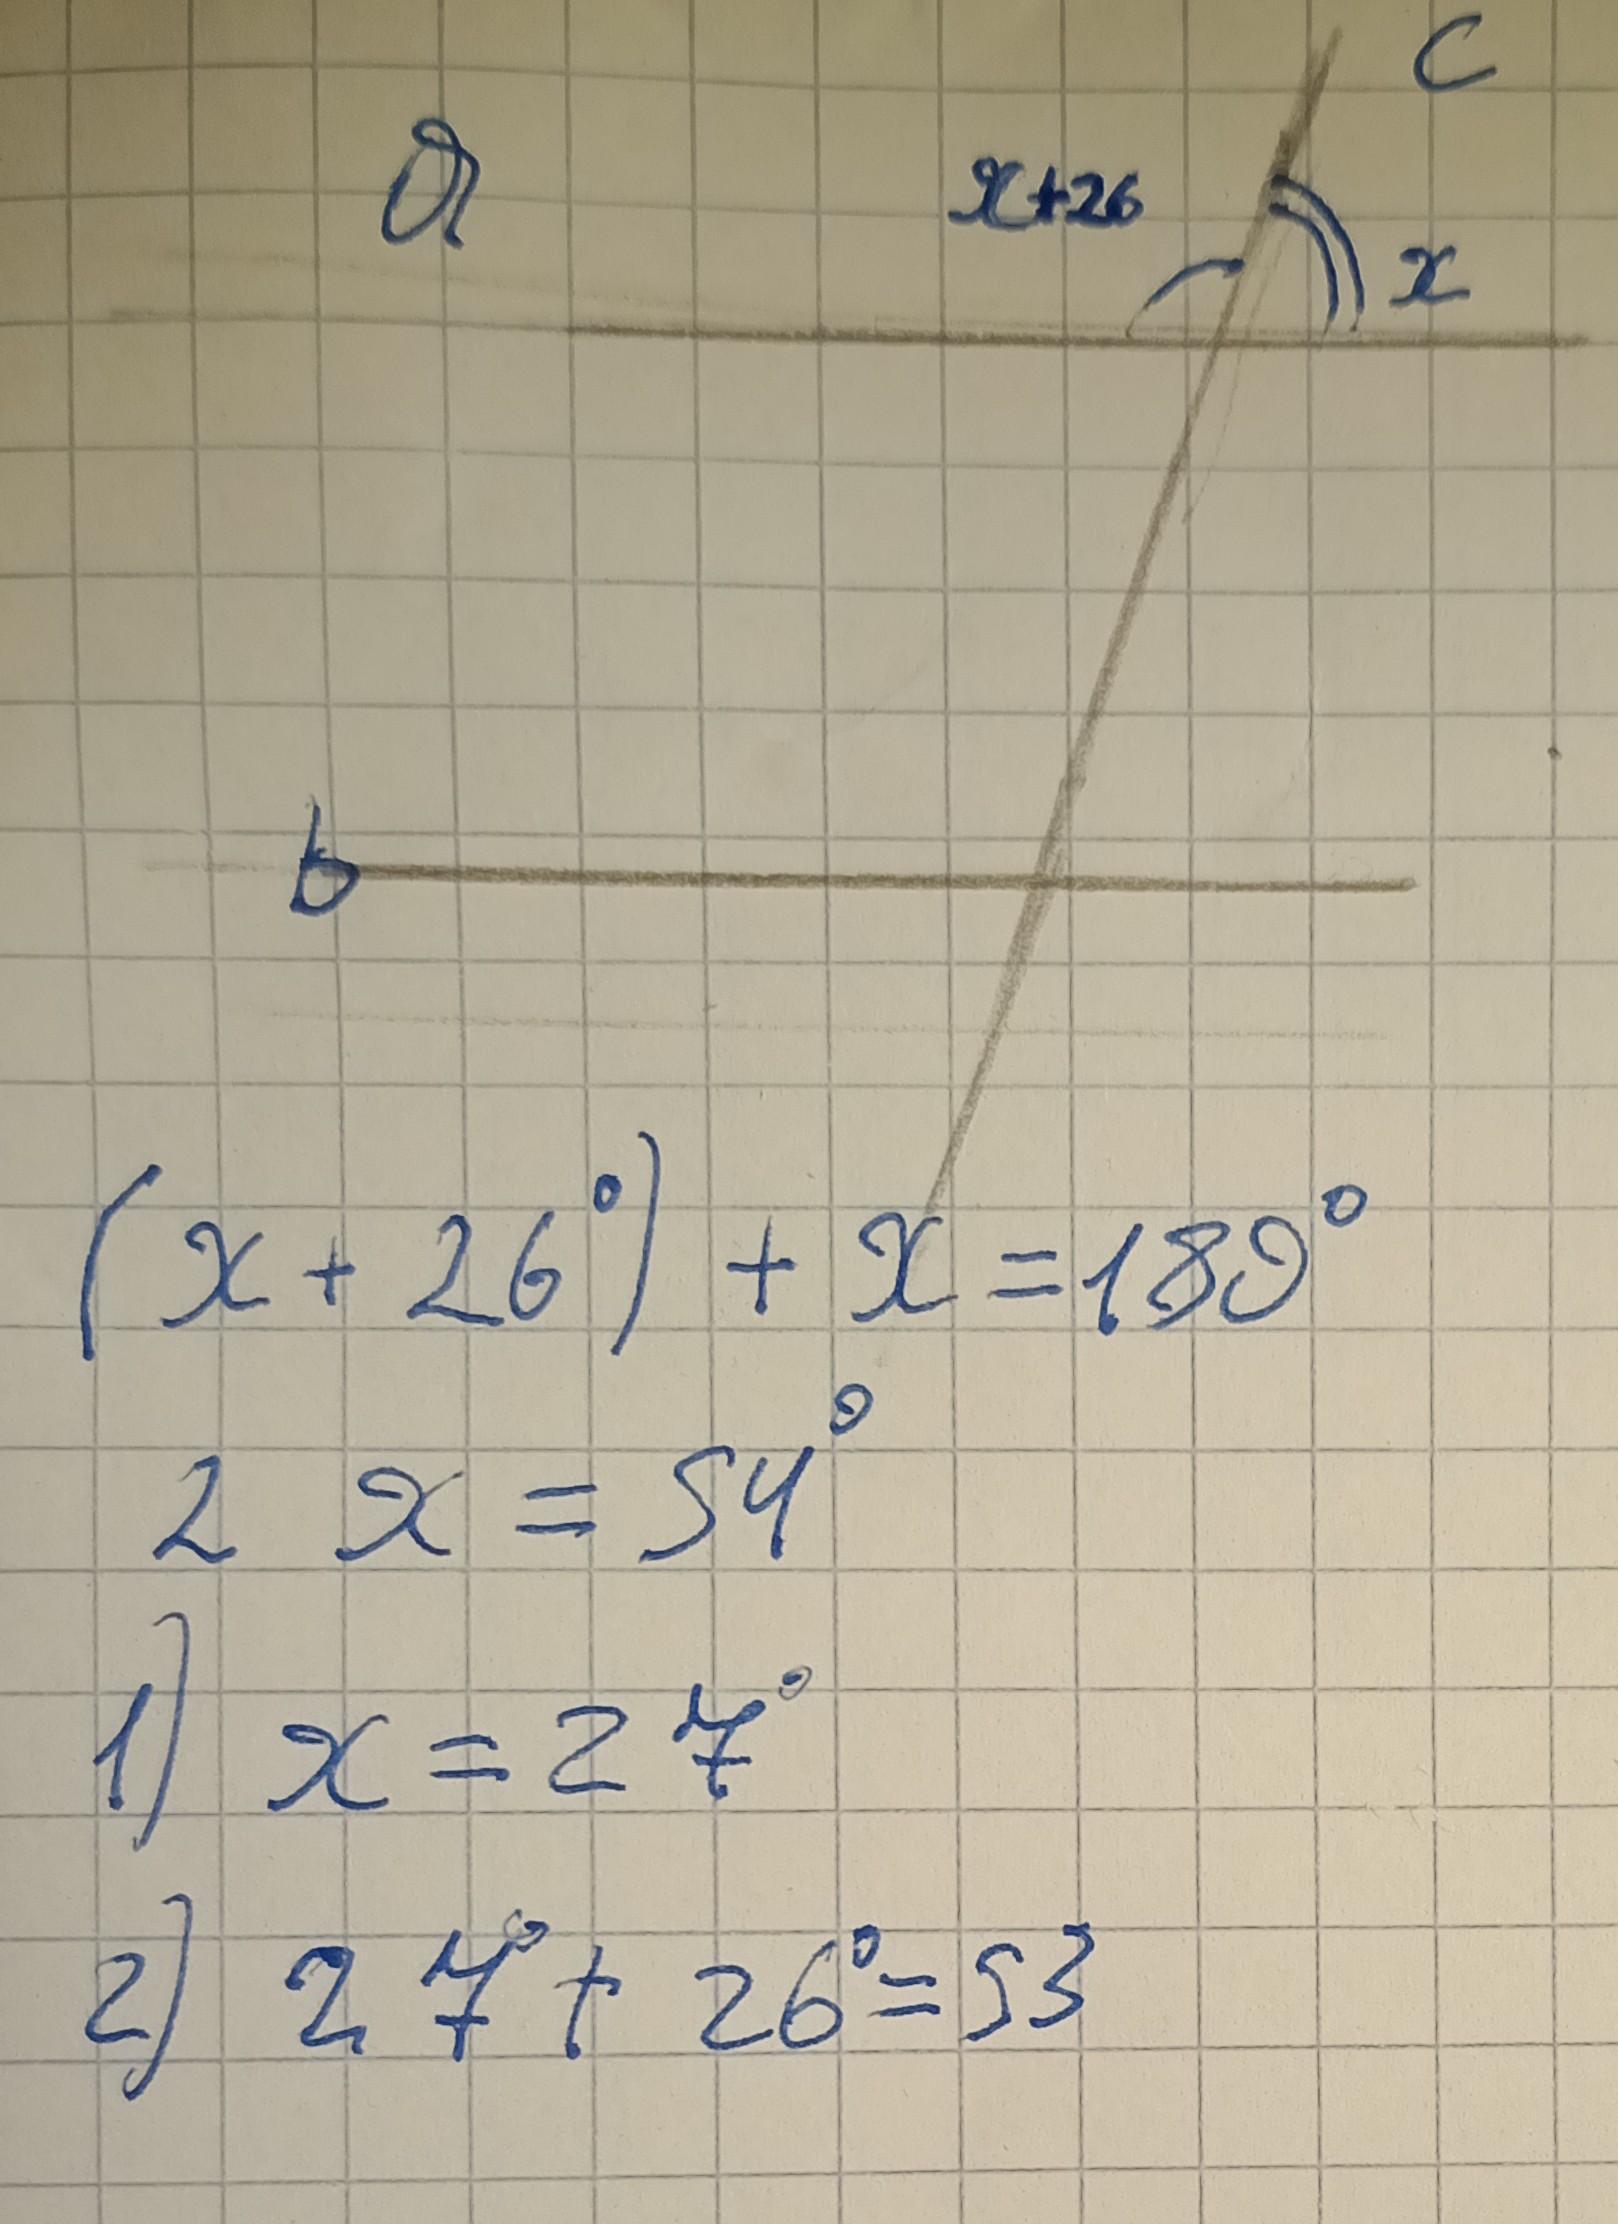 a
c
x+26
x
b
(x + 26°) + x = 180°
2 x = 54°
1) x = 27°
2) 27° + 26° = 53